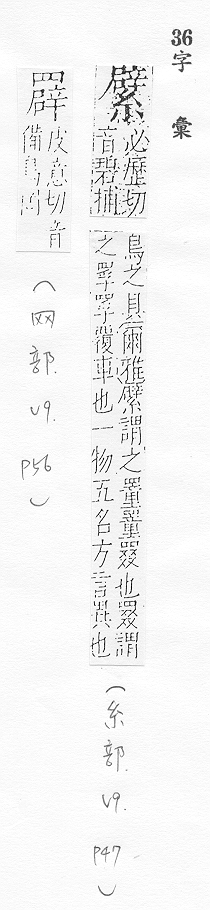 36字彙
繴
必歷切
音碧捕
鳥之具爾雅繴謂之罿罿罬也罬謂
之罦罦覆車也一物五名方言異也
(糸部. V9. P47)
皮意切音
備鳥罔
(网部. V9. P56)